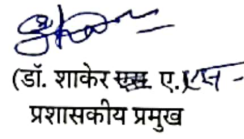 (डॉ. शाकेर एस ए.
प्रशासकीय प्रमुख